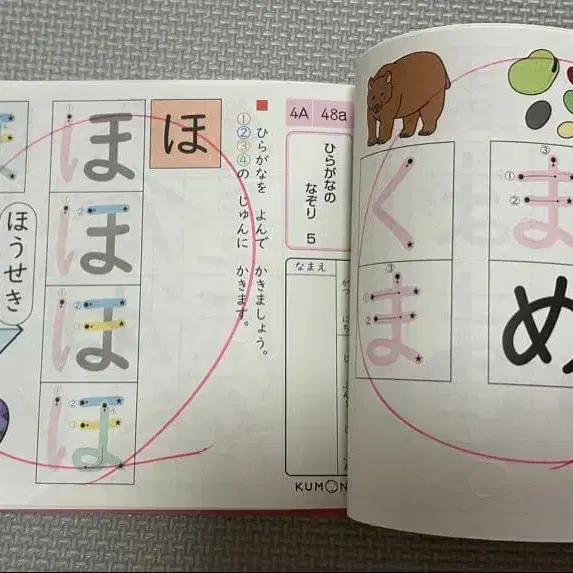 4A 48a
ひらがなの
なぞり 5
なまえ
KUMON
ひらがなを よんで かきましょう。
①②③④の じゅんに かきます。
ほ
ほ
ほ
ほ
ほ
ほうせき
く
ま
ま
め